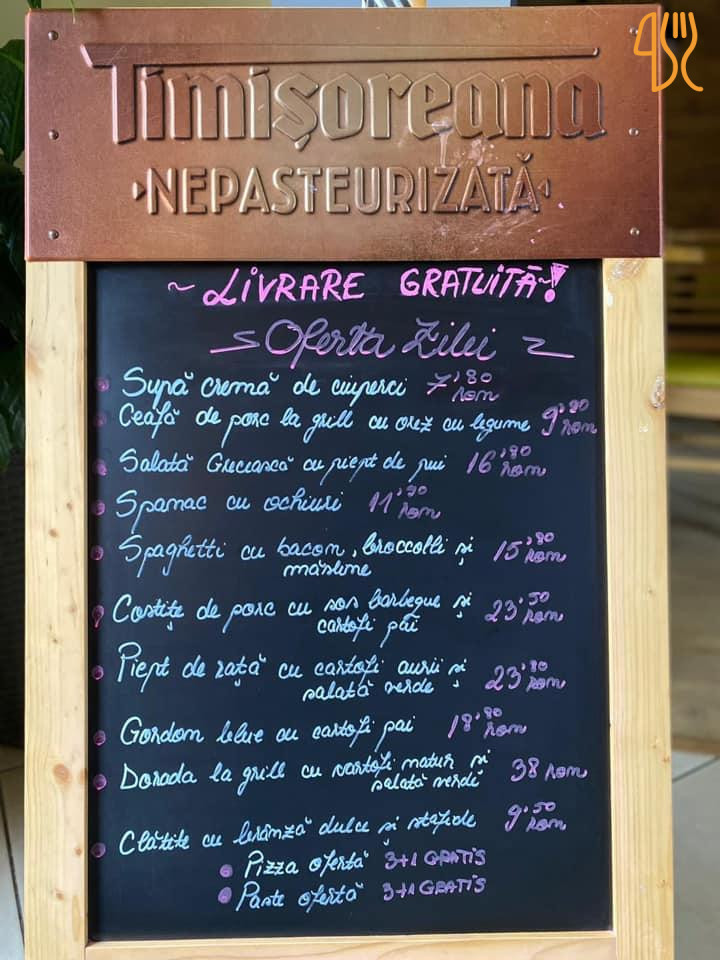 Timișoreana
NEPASTEURIZATĂ
~ LIVRARE GRATUITĂ ~!
Oferta Zilei
Supă cremă de ciuperci 7,80 ron
Ceafă de porc la grill cu orez cu legume 9,90 ron
Salată Grecească cu piept de pui 16,80 ron
Spanac cu ochiuri 11,90 ron
Spaghetti cu bacon, broccolli și 15,80 ron
măsline
Costițe de porc cu sos barbeque și 23,50 ron
cartofi pai
Piept de rață cu cartofi aurii și 23,80 ron
salată verde
Gordom bleue cu cartofi pai 18,80 ron
Dorada la grill cu cartofi natur și 38 ron
salată verde
Clătite cu brânză dulce și stafide 9,50 ron
Pizza ofertă 3+1 GRATIS
Paste ofertă 3+1 GRATIS